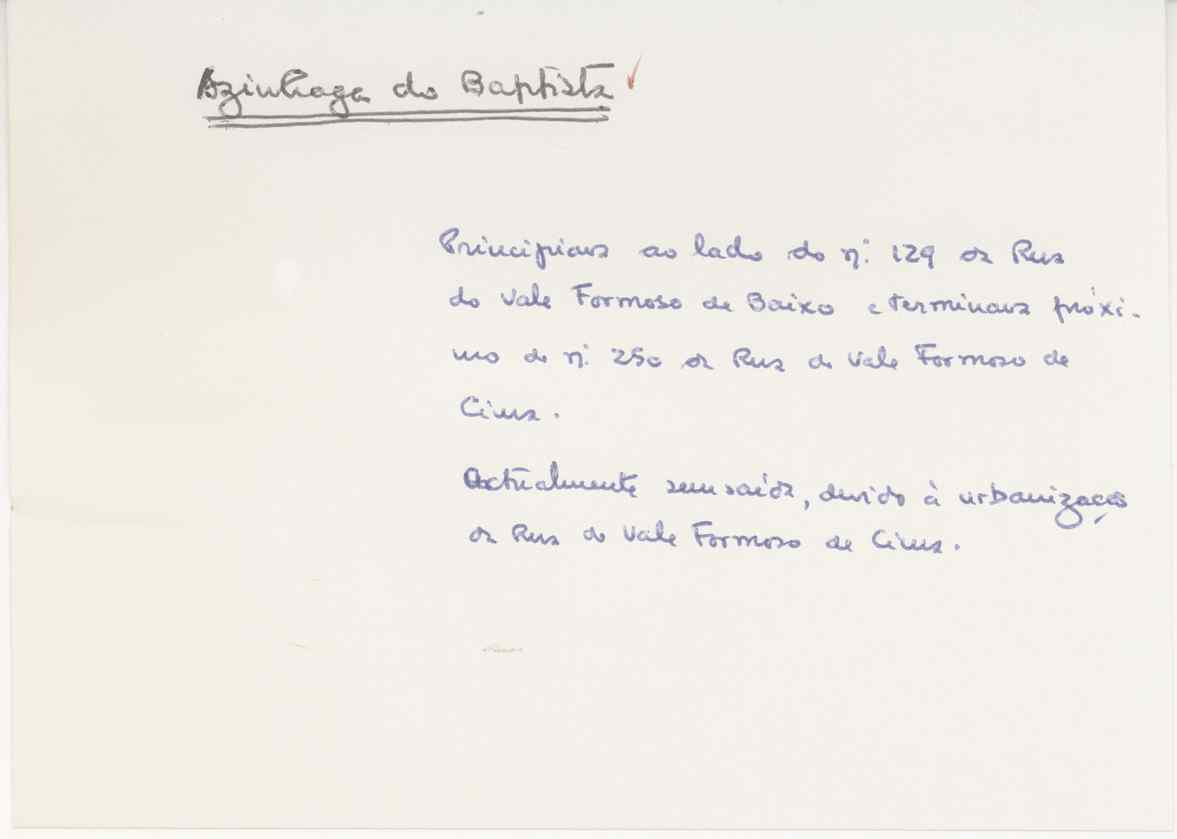 Azinhaga do Baptista
Principiava ao lado do nº. 129 da Rua
do Vale Formoso de Baixo e terminava próxi-
mo do nº. 250 da Rua do Vale Formoso de
Cima.
Actualmente sem saída, devido à urbanização
da Rua do Vale Formoso de Cima.